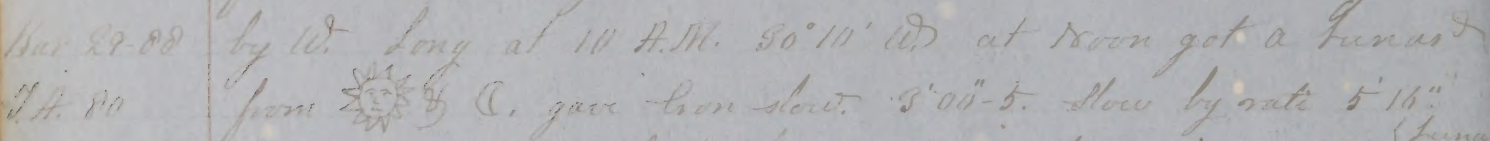 Bar 29-88 by W. Long at 10 A.M. 30° 10' W. at Noon got a Lunar
T.A. 80 from ☀ & ☾. gave Cron slow. 3' 00"-5. Slow by rate 5' 16".